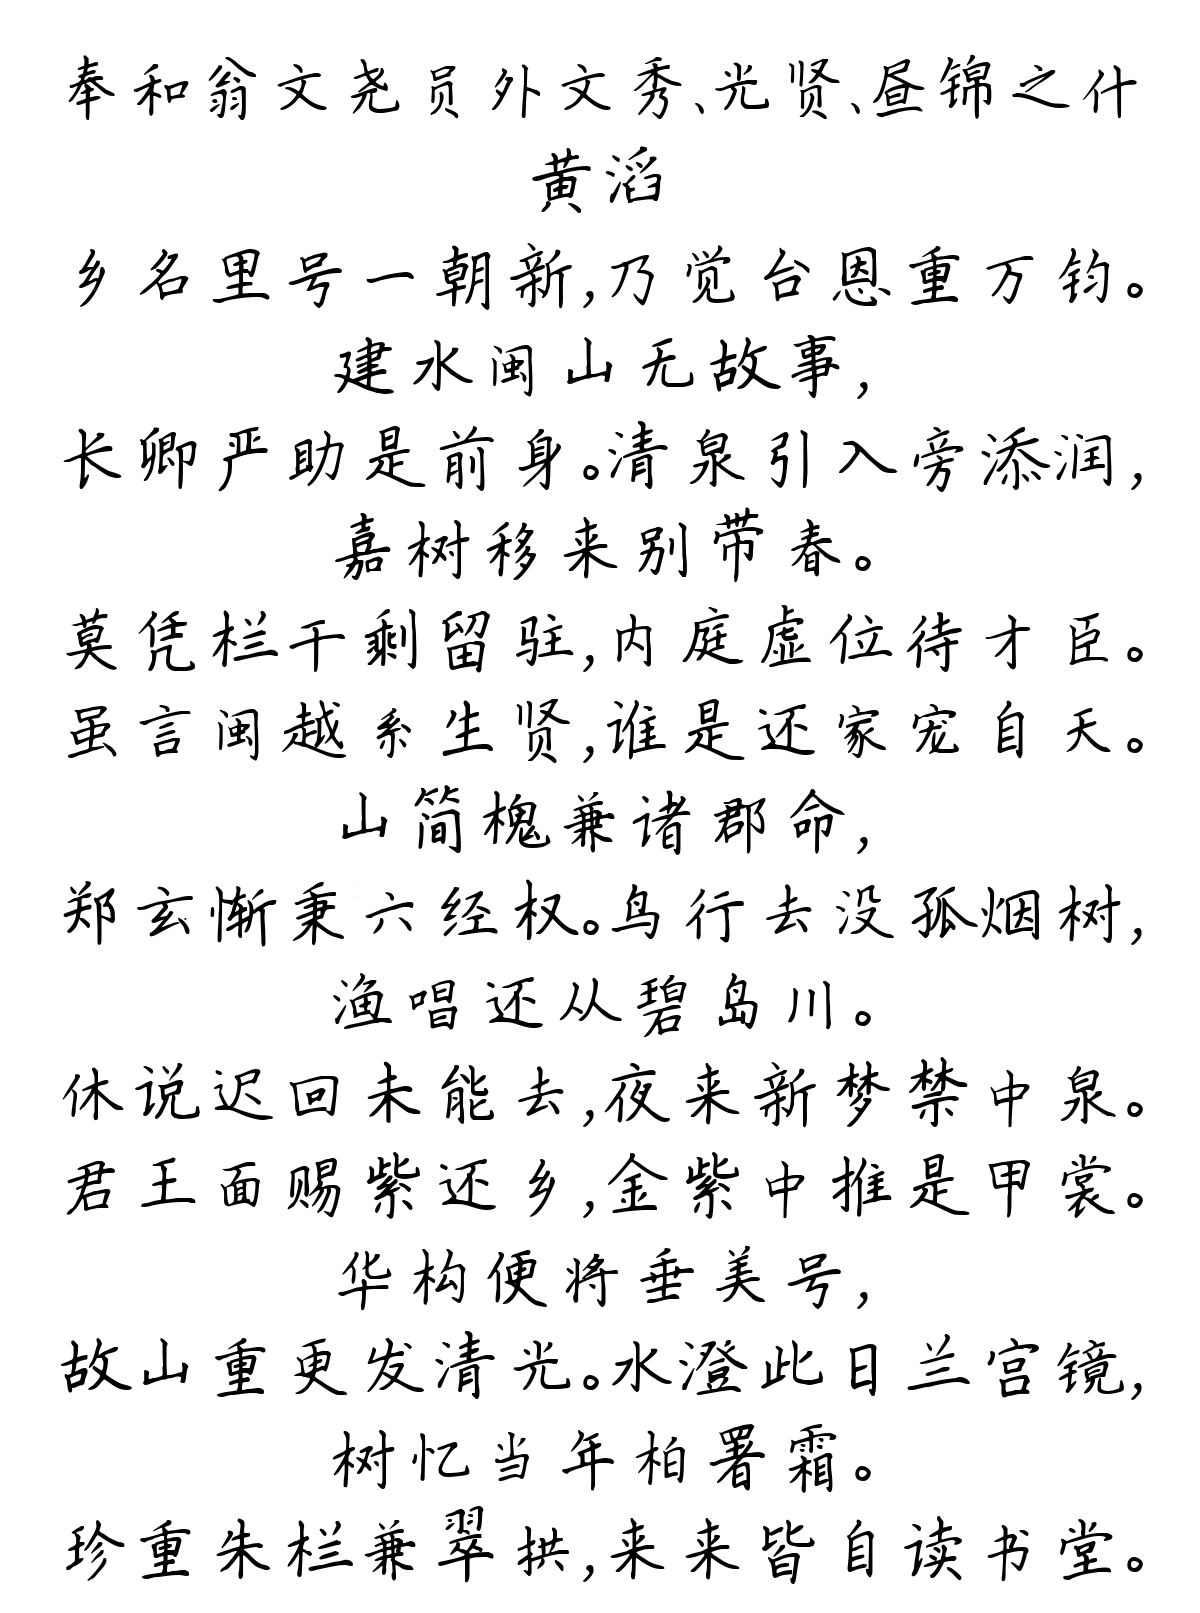 奉和翁文尧员外文秀、光贤、昼锦之什
黄滔
乡名里号一朝新,乃觉台恩重万钧。
建水闽山无故事,
长卿严助是前身。清泉引入旁添润,
嘉树移来别带春。
莫凭栏干剩留驻,内庭虚位待才臣。
虽言闽越系生贤,谁是还家宠自天。
山简槐兼诸郡命,
郑玄惭秉六经权。鸟行去没孤烟树,
渔唱还从碧岛川。
休说迟回未能去,夜来新梦禁中泉。
君王面赐紫还乡,金紫中推是甲裳。
华构便将垂美号,
故山重更发清光。水澄此日兰宫镜,
树忆当年柏署霜。
珍重朱栏兼翠拱,来来皆自读书堂。